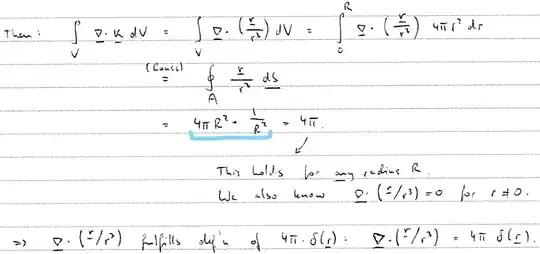 Then: ∫_V ∇·K dV = ∫_V ∇·(r/r³) dV = ∫_0^R ∇·(r/r³) 4πr² dr
(Gauss) = ∮_A r/r³ dS
= 4πR² · 1/R² = 4π.
This holds for any radius R.
We also know ∇·(r/r³) = 0 for r ≠ 0.
⇒ ∇·(r/r³) fulfills def'n of 4π·δ(r): ∇·(r/r³) = 4π δ(r).